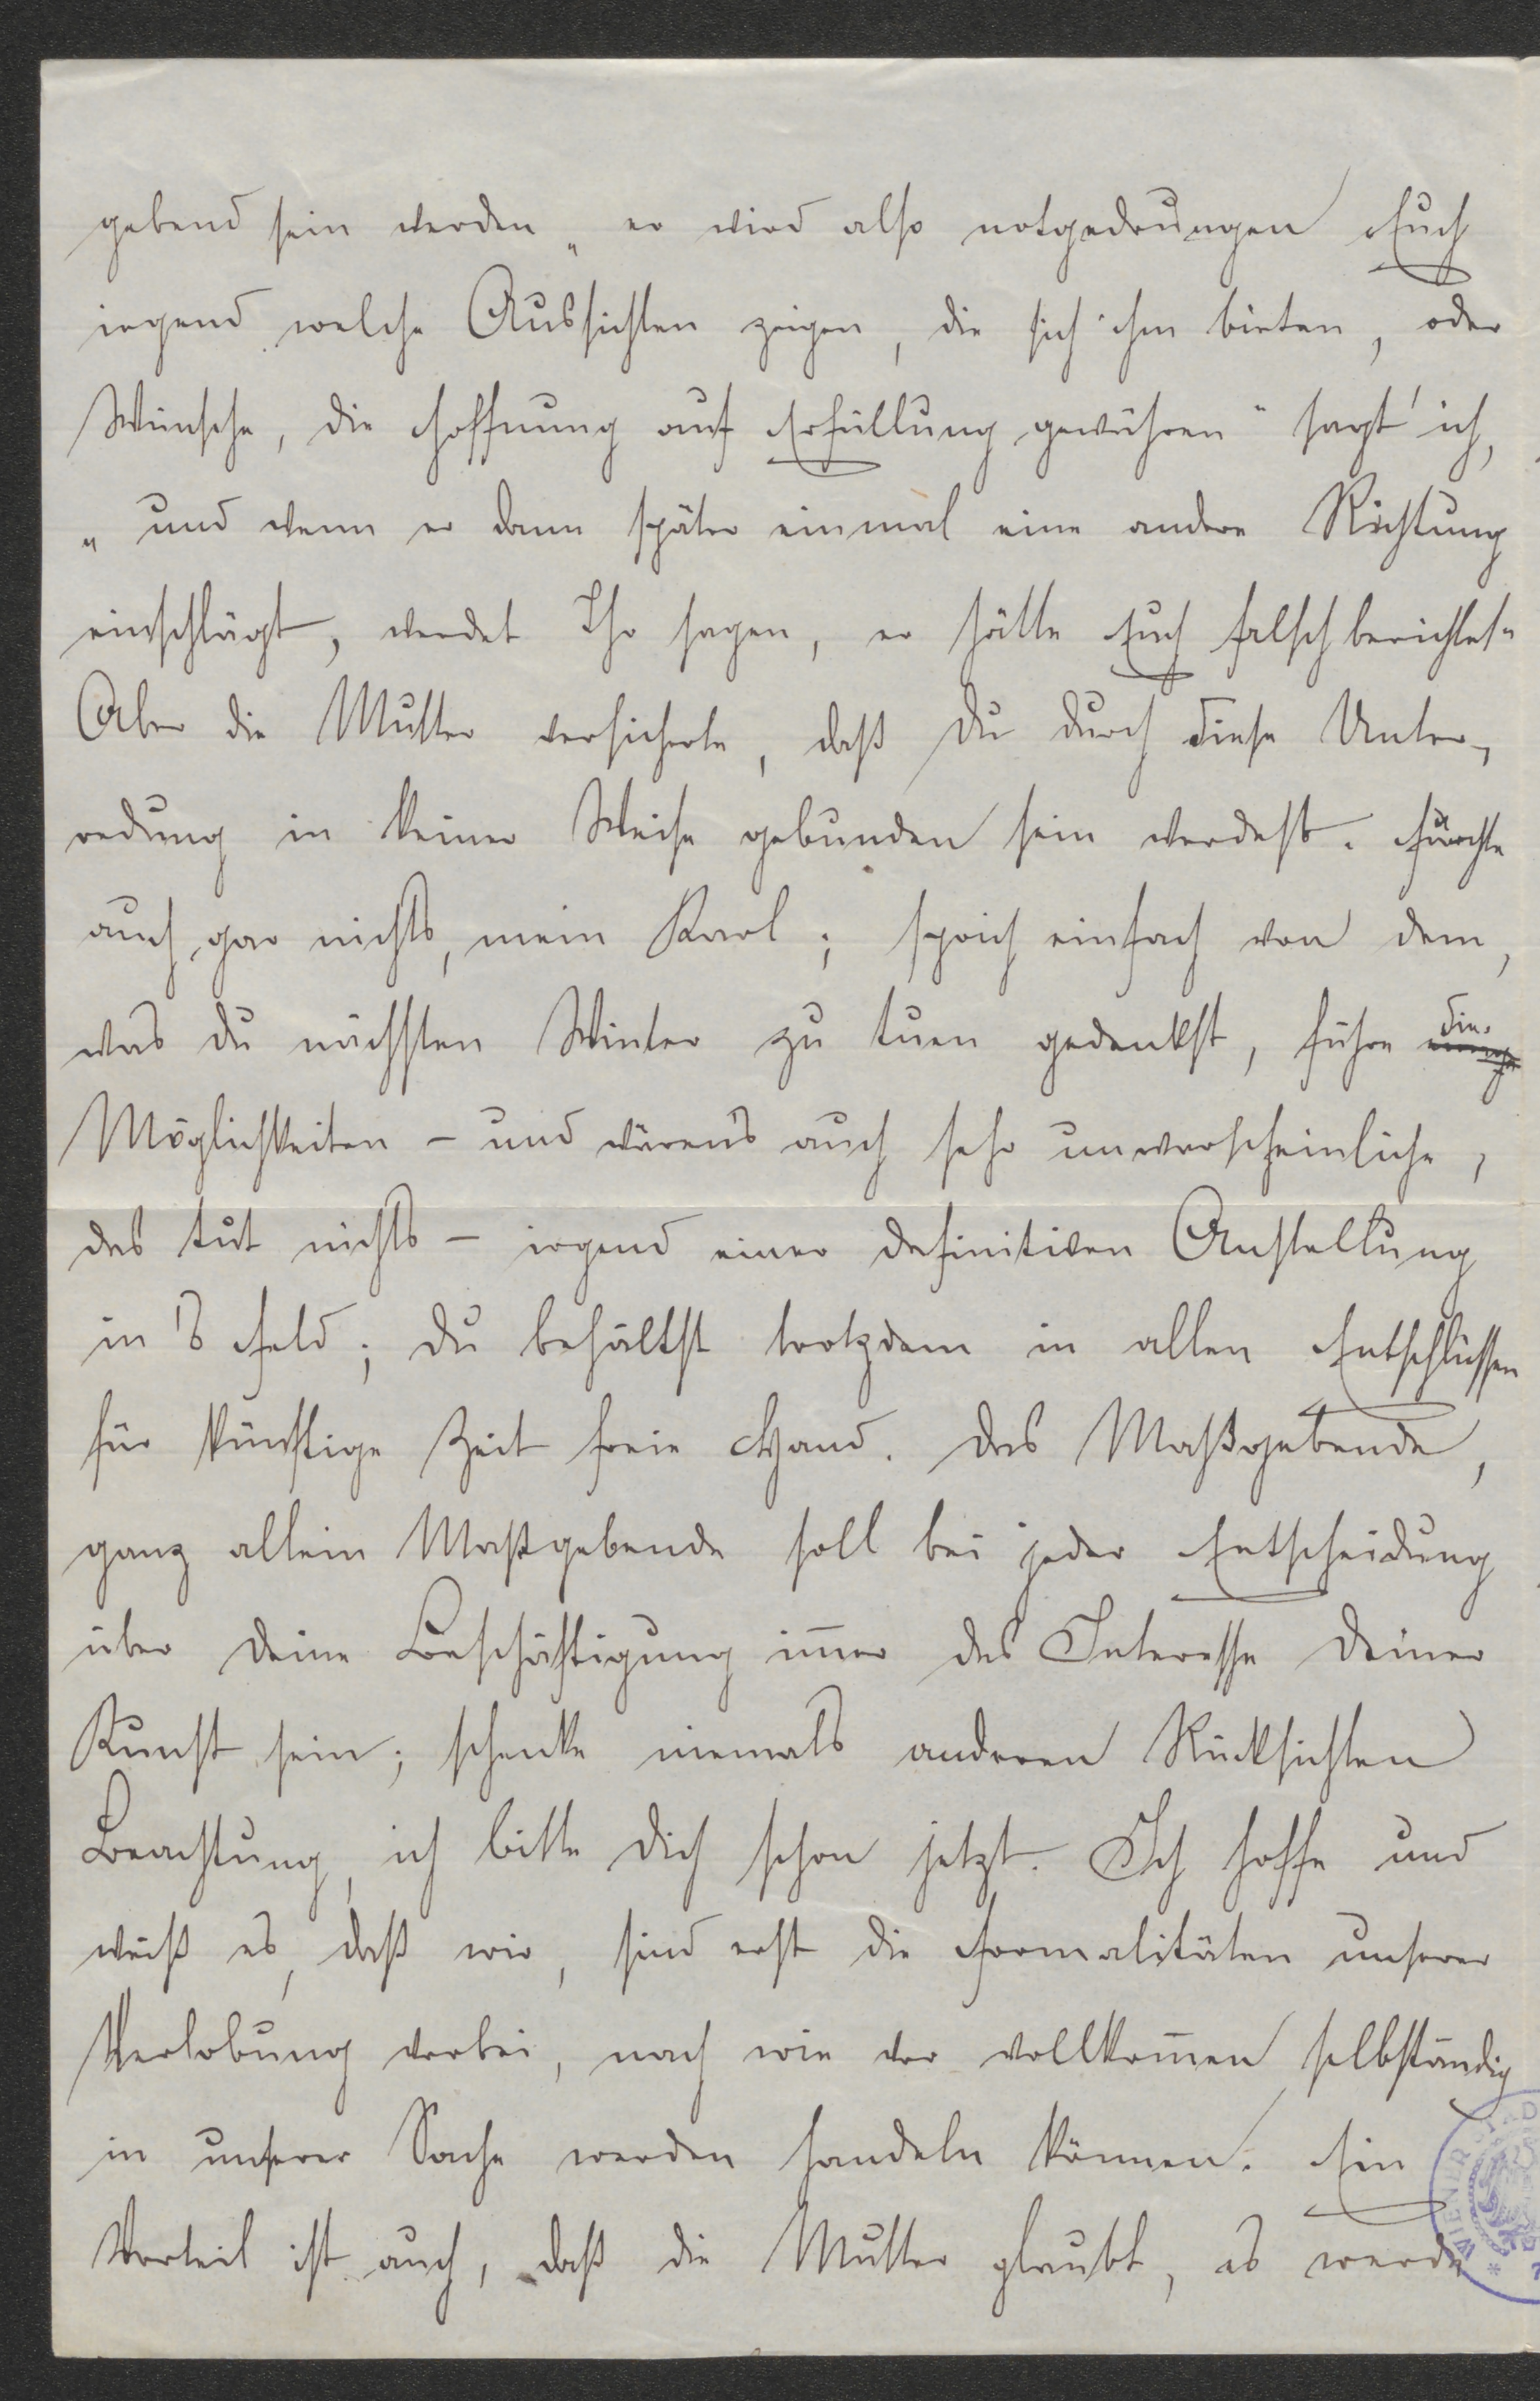 gebend sein werden „er wird also notgedrungen Euch
irgend welche Aussichten zeigen, die sich ihm bieten, oder
Wünsche, die Hoffnung auf Erfüllung gewähren“ sagt' ich,
„und wenn er dann später einmal eine andere Richtung
einschlägt, werdet Ihr sagen, er hätte Euch falsch berichtet“
Aber die Mutter versicherte, daß Du durch diese Unter-
redung in keiner Weise gebunden sein werdest. Fürchte
auch gar nichts, mein Karl; sprich einfach von dem,
was du nächsten Winter zu tuen gedenkst, führe die
Möglichkeiten – und wären's auch sehr unwarscheinliche,
das tut nichts – irgend einer definitiven Anstellung
in's Feld; Du behältst trotzdem in allen Entschlüssen
für künftige Zeit freie Hand. Das Maßgebende,
ganz allein Maßgebende soll bei jeder Entscheidung
über Deine Beschäftigung im̄er das Interesse Deiner
Kunst sein; schenke niemals anderen Rücksichten
Beachtung, ich bitte Dich schon jetzt. Ich hoffe und
weiß es, daß wir, sind erst die Formalitäten unserer
Verlobung vorbei, nach wie vor vollkom̄en selbständig
in unserer Sache werden handeln können. Ein
Vorteil ist auch, daß die Mutter glaubt, es werde
WIENER STAD